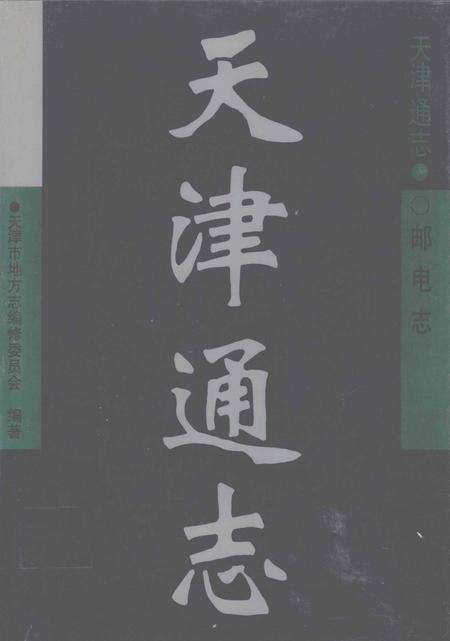 天津通志
天津通志·
邮电志
天津市地方志编修委员会 编著